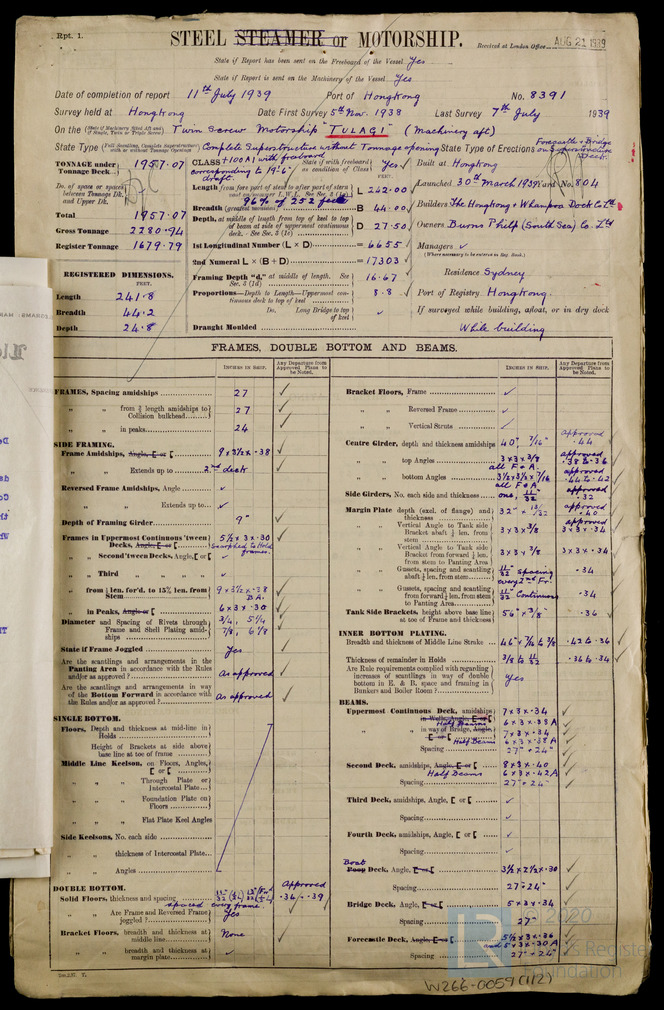 Rpt. 1.
STEEL STEAMER or MOTORSHIP.
Received at London Office AUG 21 1939
State if Report has been sent on the Freeboard of the Vessel Yes
State if Report is sent on the Machinery of the Vessel Yes
Date of completion of report 11th July 1939 Port of Hongkong No. 8391
Survey held at Hongkong Date First Survey 5th Nov. 1938 Last Survey 7th July 1939
On the (State if Machinery fitted Aft and if Single, Twin or Triple Screw) Twin Screw Motorship "TULAGI" (Machinery aft)
State Type (Full Scantling, Complete Superstructure with or without Tonnage Openings) Complete Superstructure without Tonnage opening State Type of Erections Forecastle & Bridge on Superstructure Deck.
TONNAGE under Tonnage Deck 1957.07
Do. of space or spaces between Tonnage Dk. and Upper Dk.
Total 1957.07
Gross Tonnage 2280.94
Register Tonnage 1679.79
REGISTERED DIMENSIONS.
FEET.
Length 241.8
Breadth 44.2
Depth 24.8
CLASS +100A1 with freeboard corresponding to 19'-6" draft. State if with freeboard as condition of Class Yes
FEET.
Length from fore part of stem to after part of stern post on summer L.W.L. See Sec. 3 (1a) L 242.00
96% of 252 feet
Breadth (greatest moulded) B 44.00
Depth, at middle of length from top of keel to top of beam at side of uppermost continuous deck. See Sec. 3 (1c) D 27.50
1st Longitudinal Number (L × D) = 6655
2nd Numeral L × (B + D) = 17303
Framing Depth "d," at middle of length. See Sec. 3 (1d) 16.67
Proportions—Depth to Length—Uppermost continuous deck to top of keel 8.8
Do. Long Bridge to top of keel
Draught Moulded
Built at Hongkong
Launched 30th March 1939 Yard No. 804
Builders The Hongkong & Whampoa Dock Co. Ltd
Owners Burns Philp (South Sea) Co. Ltd
Managers
(Where necessary to be entered in Reg. Book.)
Residence Sydney
Port of Registry Hongkong.
If surveyed while building, afloat, or in dry dock
While building
FRAMES, DOUBLE BOTTOM AND BEAMS.
INCHES IN SHIP.
Any Departure from Approved Plans to be Noted.
FRAMES, Spacing amidships 27
" " from ⅗ length amidships to Collision bulkhead 27
" " in peaks 24
SIDE FRAMING.
Frame Amidships, Angle, [ or [ 9 × 3½ × .38
" " Extends up to 2nd deck
Reversed Frame Amidships, Angle
" " Extends up to
Depth of Framing Girder 9"
Frames in Uppermost Continuous 'tween Decks, Angle, [ or [ 5½ × 3 × .30
" " Second 'tween Decks, Angle, [ or [
" " Third " "
" " from ⅕ len. for'd. to 15% len. from Stem 9 × 3½ × .38 B.A.
" " in Peaks, Angle or [ 6 × 3 × .30
Diameter and Spacing of Rivets through Frame and Shell Plating amidships 3/4, 5 1/4 7/8, 6 1/8
State if Frame Joggled Yes
Are the scantlings and arrangements in the Panting Area in accordance with the Rules and/or as approved? As approved
Are the scantlings and arrangements in way of the Bottom Forward in accordance with the Rules and/or as approved? As approved
SINGLE BOTTOM.
Floors, Depth and thickness at mid-line in Holds
Height of Brackets at side above base line at toe of frame
Middle Line Keelson, on Floors, Angles, [ or [
" " Through Plate or Intercostal Plate
" " Foundation Plate on Floors
" " Flat Plate Keel Angles
Side Keelsons, No. each side
" " thickness of Intercostal Plate
" " Angles
DOUBLE BOTTOM.
Solid Floors, thickness and spacing spaced every frame. Approved .36 - .39
" " Are Frame and Reversed Frame joggled? Yes
Bracket Floors, breadth and thickness at middle line None
" " breadth and thickness at margin plate
INCHES IN SHIP.
Any Departure from Approved Plans to be Noted.
Bracket Floors, Frame
" " Reversed Frame
" " Vertical Struts
Centre Girder, depth and thickness amidships 40", 7/16" approved .44
" " top Angles 3 × 3 × 3/8 all F & A. approved .38 & .36
" " bottom Angles 3½ × 3½ × 7/16 all F & A. approved .44 & .42
Side Girders, No. each side and thickness one, 11/32 approved .32
Margin Plate depth (excl. of flange) and thickness 32" × 13/32 approved .40
" " Vertical Angle to Tank side Bracket abaft ¼ len. from stem 3 × 3 × 3/8 approved 3 × 3 × .34
" " Vertical Angle to Tank side Bracket from forward ¼ len. from stem to Panting Area 3 × 3 × 3/8 3 × 3 × .34
" " Gussets, spacing and scantling abaft ¼ len. from stem 11/32 spacing every 2nd Fr. .34
" " Gussets, spacing and scantling from forward ¼ len. from stem to Panting Area 11/32 Continuous .34
Tank Side Brackets, height above base line at toe of Frame and thickness 56" × 3/8" .36
INNER BOTTOM PLATING.
Breadth and thickness of Middle Line Strake 46" × 7/16 to 3/8 .42 & .36
Thickness of remainder in Holds 3/8 to 11/32 .36 & .34
Are Rule requirements complied with regarding increases of scantlings in way of double bottom in E. & B. space and framing in Bunkers and Boiler Room? Yes
BEAMS.
Uppermost Continuous Deck, amidships 7 × 3 × .34
Half Beams 6 × 3 × .38 A
" " in way of Bridge, Angle, [ or [ 7 × 3 × .34
Half Beams 6 × 3 × .38 A
Spacing 27" + 24"
Second Deck, amidships, Angle, [ or [ 8 × 3 × .40
Half Beams 6 × 3 × .42 A
Spacing 27" + 24"
Third Deck, amidships, Angle, [ or [
Spacing
Fourth Deck, amidships, Angle, [ or [
Spacing
Boat Poop Deck, Angle, [ or [ 3½ × 2½ × .30
Spacing 27 + 24"
Bridge Deck, Angle, [ or [ 5 × 3 × .34
Spacing 27"
Forecastle Deck, Angle, [ or [ 5½ × 3 × .36 and 5 × 3 × .30 A
Spacing 27" + 24"
© 2020
Foundation
W266-0059 (1/2)